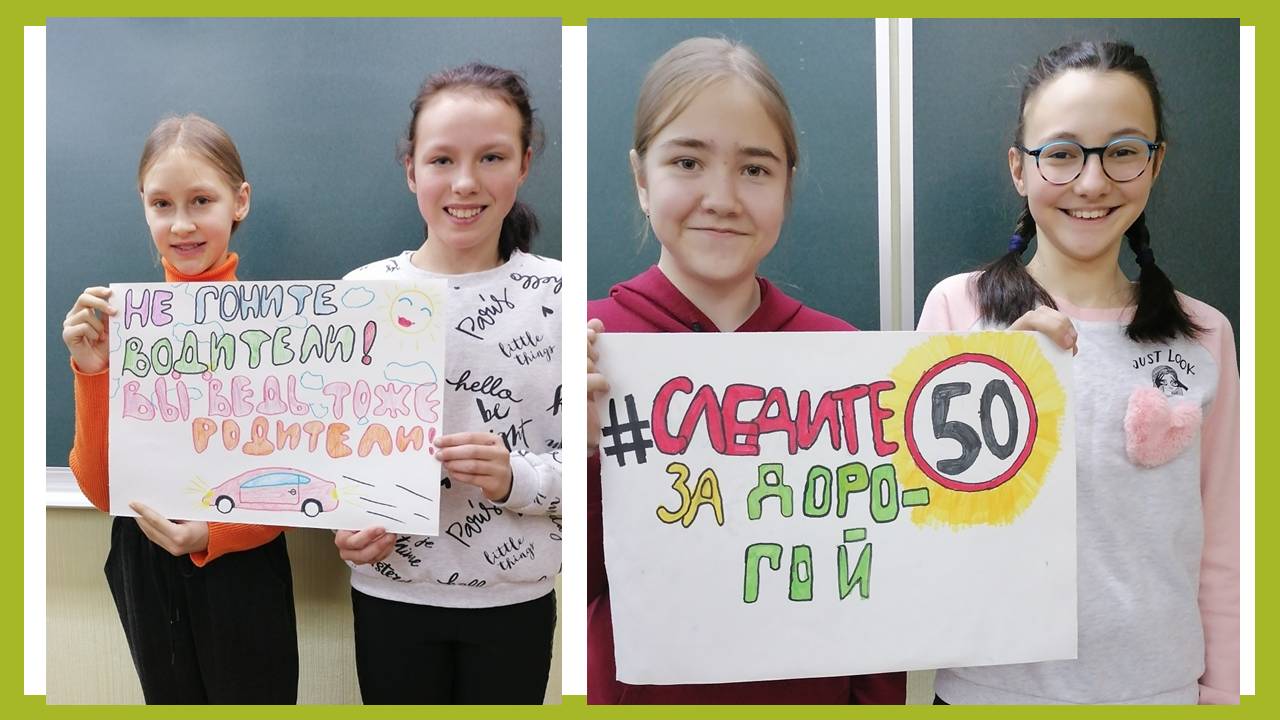 НЕ ГОНИТЕ
ВОДИТЕЛИ!
ВЫ ВЕДЬ ТОЖЕ
РОДИТЕЛИ!
hello
Paris
little
things
hello
be
Paris
little
things
#СЛЕДИТЕ
50
ЗА ДОРО-
ГОЙ
JUST LOOK